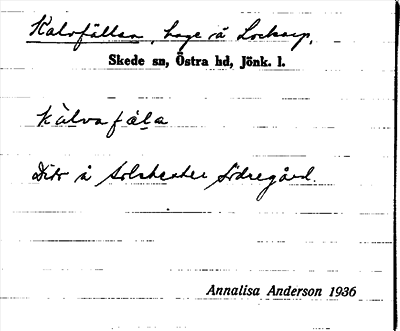 Kalvfällan, hage å Lockarp,
Skede sn, Östra hd, Jönk. l.
kàlvafäla
Dito å Södregård.
Annalisa Anderson 1936